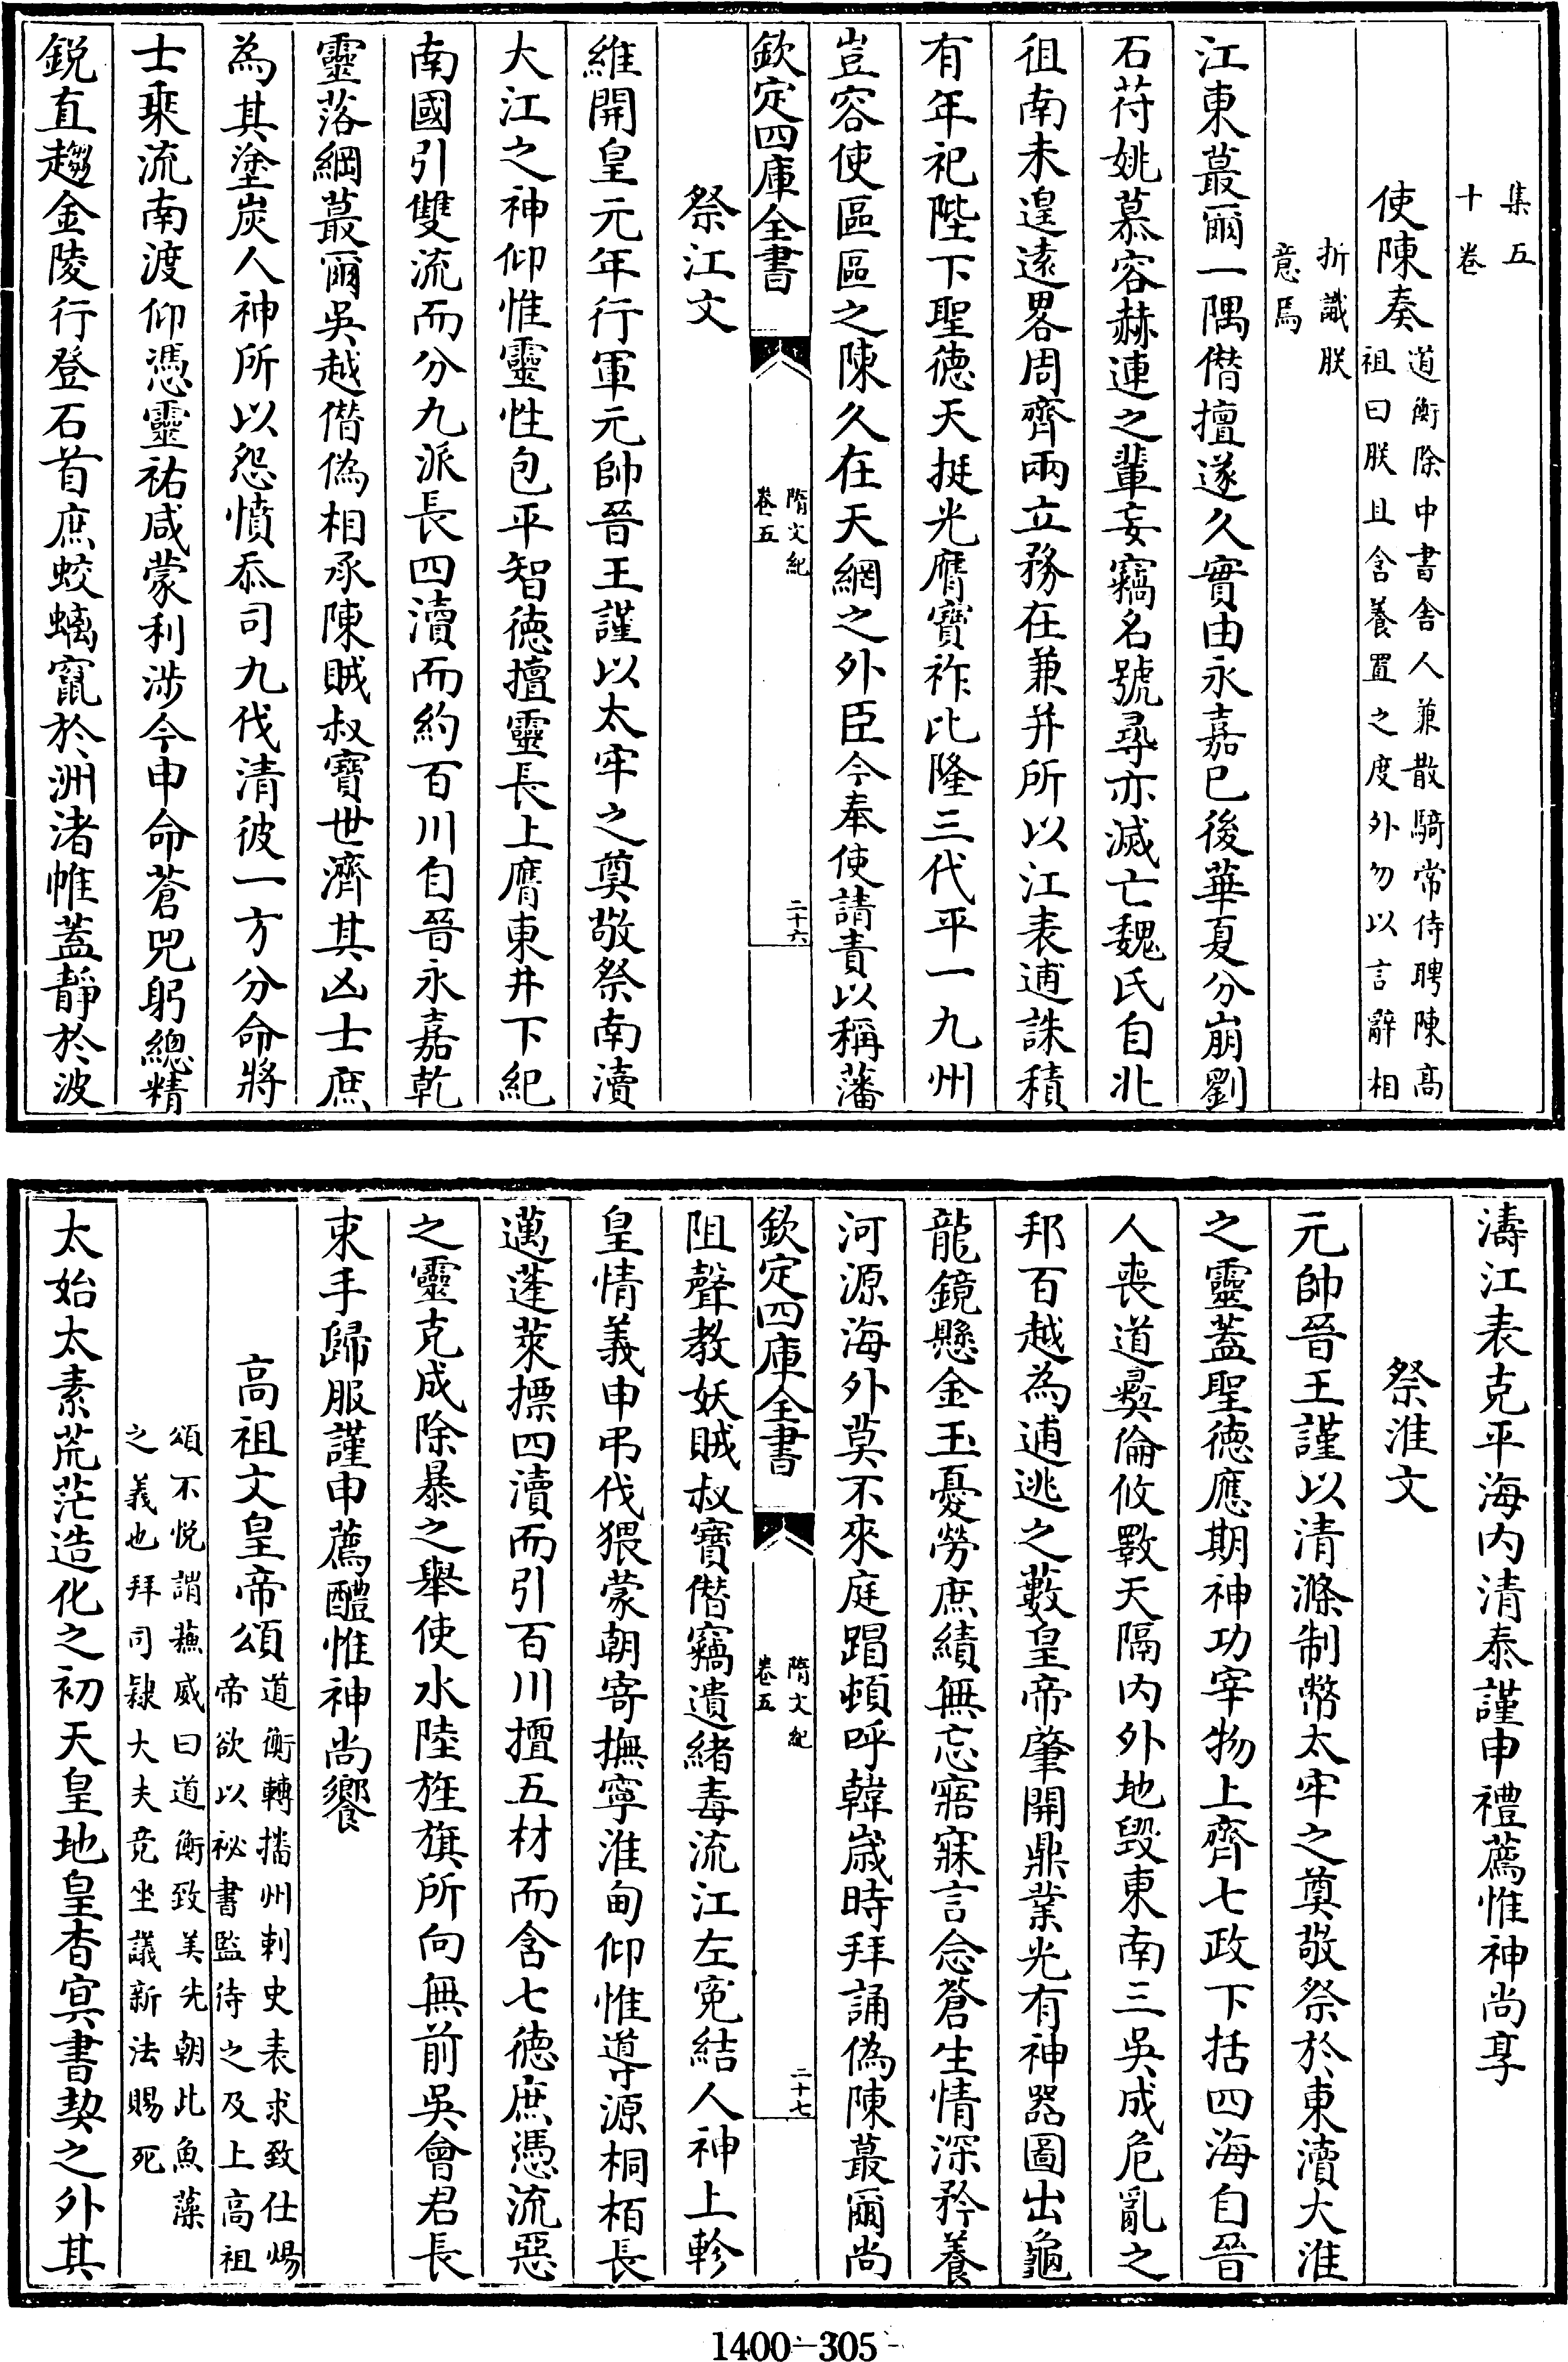 集五
十卷
使陳奏
道衡除中書舎人兼散騎常侍聘陳高
祖曰朕且含養置之度外勿以言辭相
折識朕
意焉
江東蕞爾一隅僭擅遂久實由永嘉已後華夏分崩劉
石苻姚慕容赫連之輩妄竊名號尋亦滅亡魏氏自北
徂南未遑逺畧周齊兩立務在兼并所以江表逋誅積
有年祀陛下聖徳天挺光膺寶祚比隆三代平一九州
豈容使區區之陳久在天網之外臣今奉使請責以稱藩
欽定四庫全書
隋文紀
卷五
二十六
祭江文
維開皇元年行軍元帥晉王謹以太牢之奠敬祭南瀆
大江之神仰惟靈性包平智徳擅靈長上膺東井下紀
南國引雙流而分九派長四瀆而約百川自晉永嘉乾
靈落綱蕞爾吳越僭偽相承陳賊叔寶世濟其凶士庶
為其塗炭人神所以怨憤忝司九伐清彼一方分命將
士乘流南渡仰憑靈祐咸蒙利涉今申命蒼兕躬總精
鋭直趨金陵行登石首庶蛟螭竄於洲渚帷蓋靜於波
濤江表克平海内清泰謹申禮薦惟神尚享
祭淮文
元帥晉王謹以清滌制幣太牢之奠敬祭於東瀆大淮
之靈蓋聖徳應期神功宰物上齊七政下括四海自晉
人喪道彞倫攸斁天隔内外地毁東南三吳成危亂之
邦百越為逋逃之藪皇帝肇開鼎業光有神器圖出龜
龍鏡懸金玉憂勞庶績無忘寤寐言念蒼生情深矜養
河源海外莫不來庭蹋頓呼韓歳時拜誦偽陳蕞爾尚
欽定四庫全書
隋文紀
卷五
二十七
阻聲教妖賊叔寶僭竊遺緒毒流江左寃結人神上軫
皇情義申弔伐猥蒙朝寄撫寧淮甸仰惟導源桐栢長
邁蓬萊摽四瀆而引百川擅五材而含七徳庶憑流惡
之靈克成除暴之舉使水陸旌旗所向無前吳會君長
束手歸服謹申薦醴惟神尚饗
高祖文皇帝頌
道衡轉播州刺史表求致仕煬
帝欲以祕書監待之及上高祖
頌不悦謂蘇威曰道衡致美先朝此魚藻
之義也拜司隸大夫竟坐議新法賜死
太始太素荒茫造化之初天皇地皇杳㝠書契之外其
1400-305